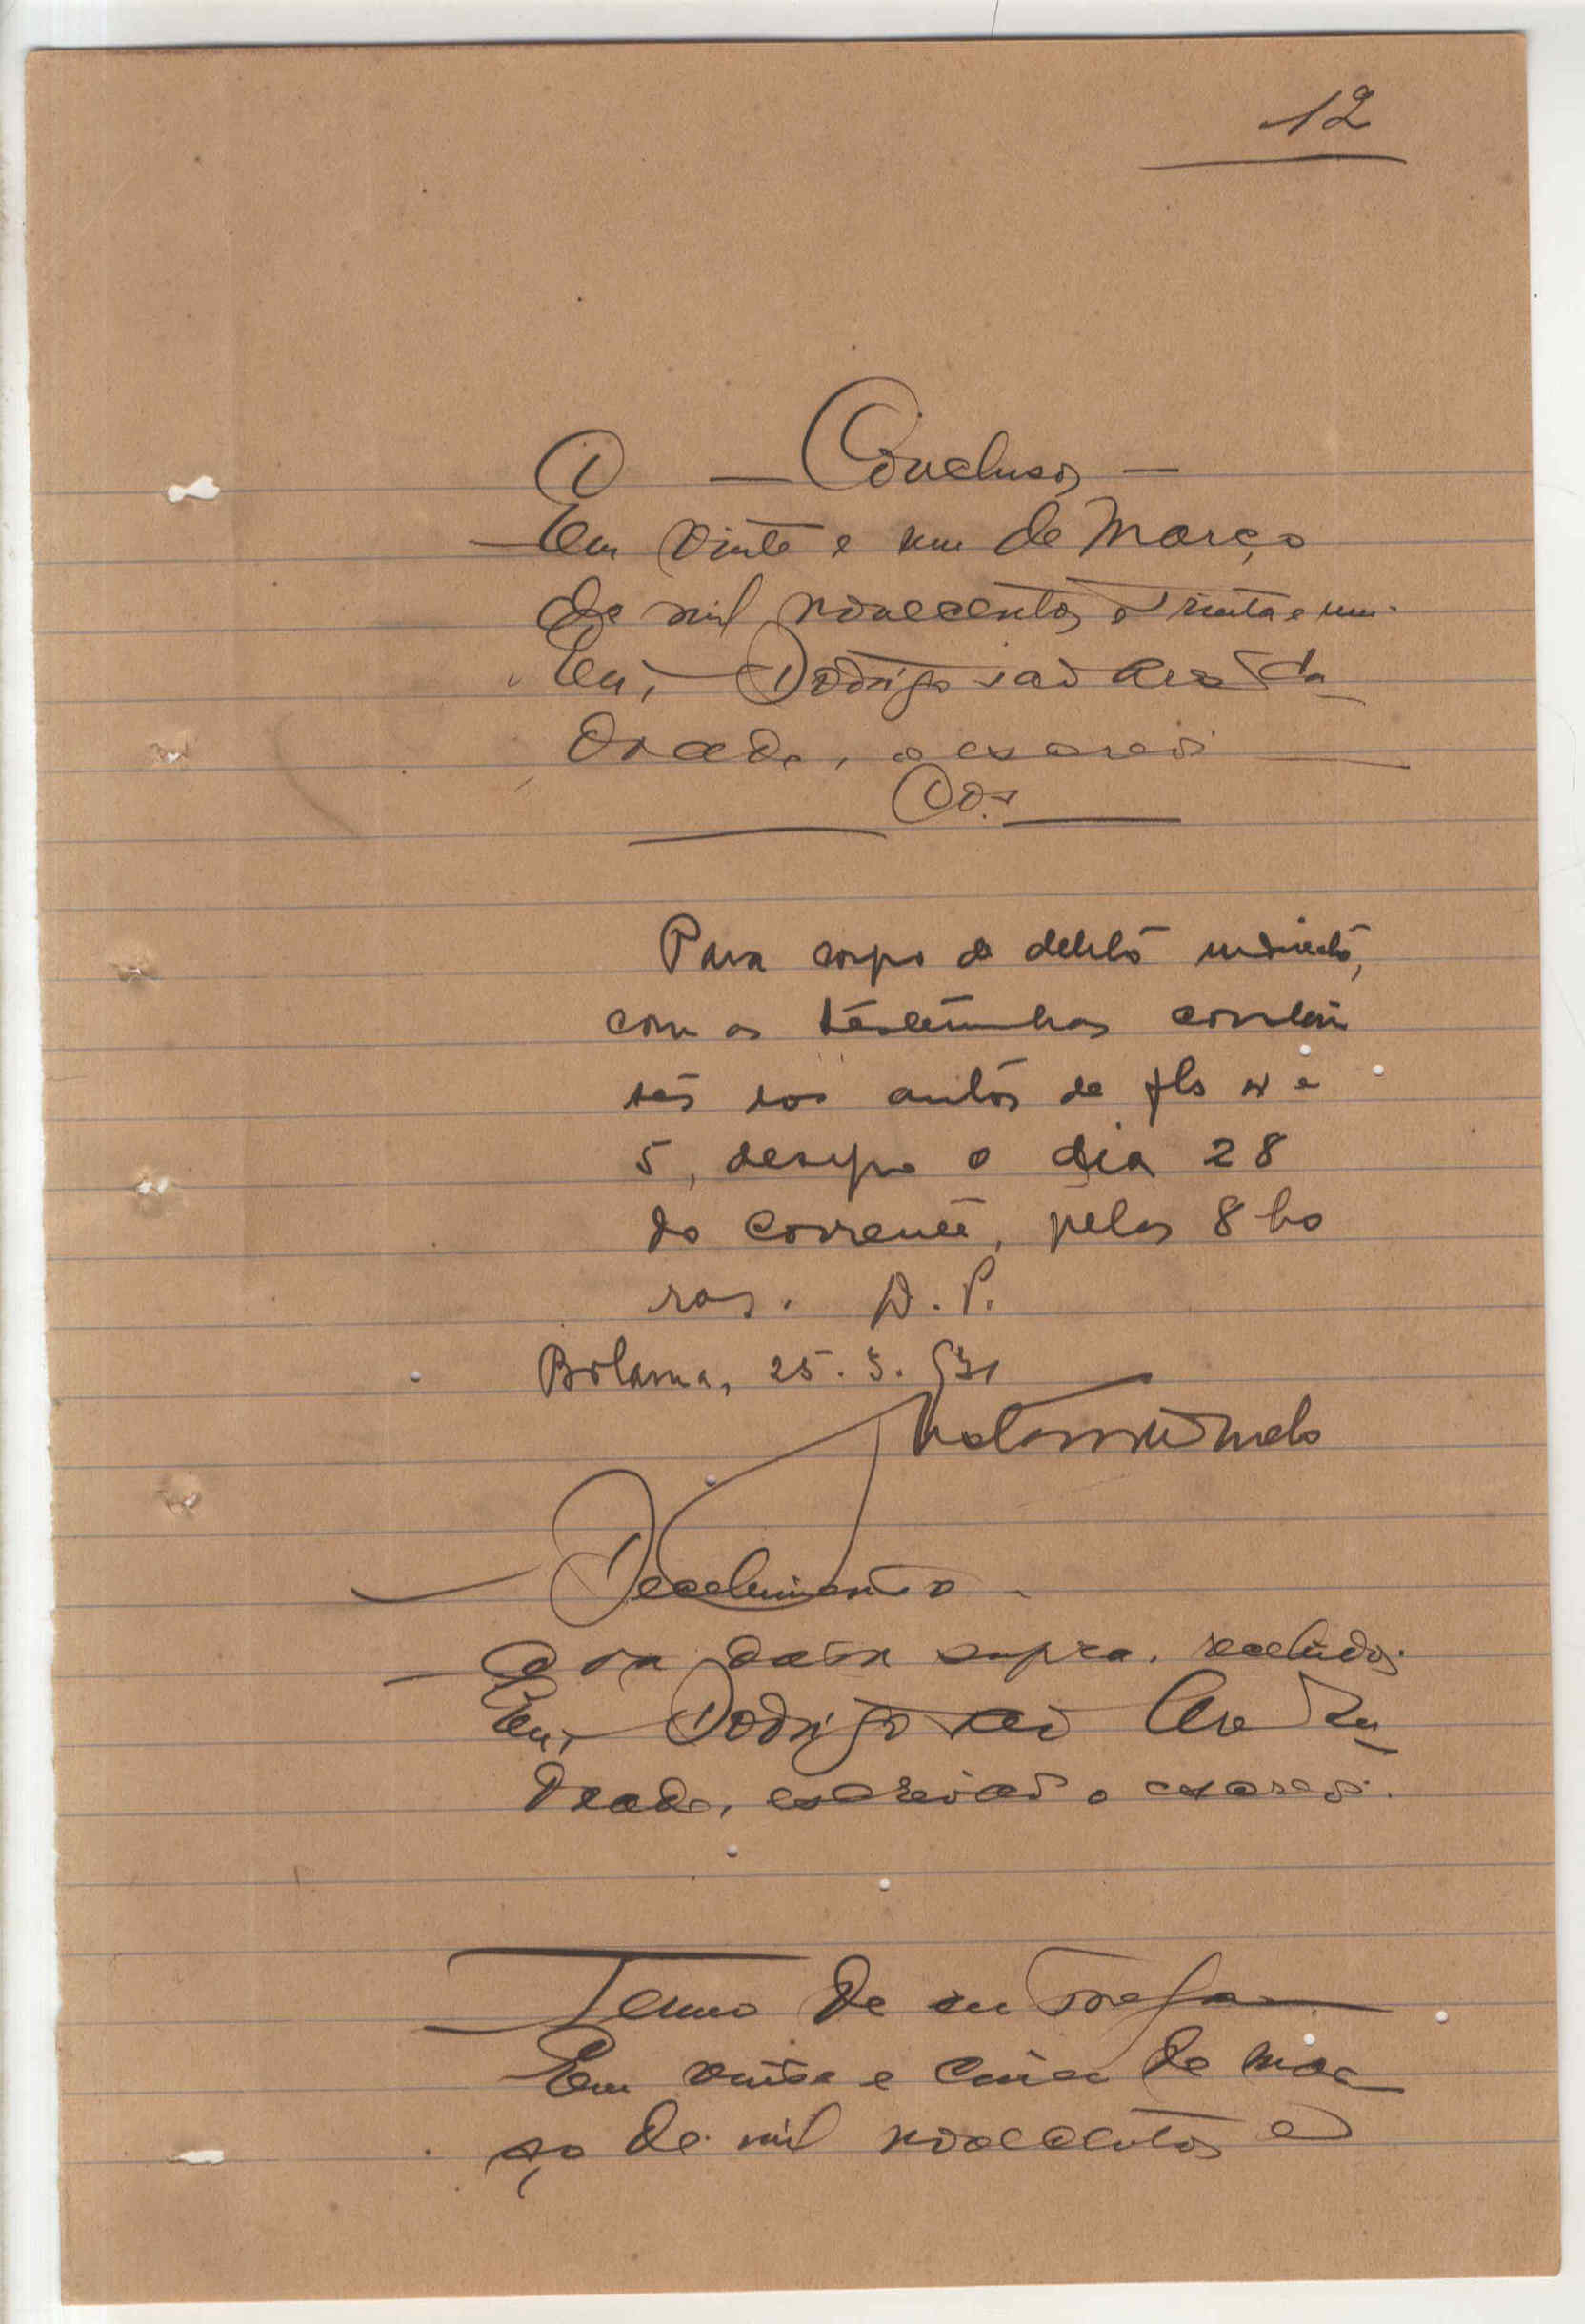 12
— Conclusos —
Em vinte e um de Março
de mil novecentos e trinta e um.
Eu, Rodrigo
drade, o escrevi
Para corpo de delicto indirecto,
com as testemunhas constan
tes dos autos de fls 4 e
5, designo o dia 28
do corrente, pelas 8 ho
ras. D. P.
Bolama, 25. 3. 931
Recebimento
E na data supra. recebidos.
Eu, Rodrigo
drade, escrivão o escrevi.
Termo de entrega
Em vinte e cinco de mar
ço de mil novecentos e